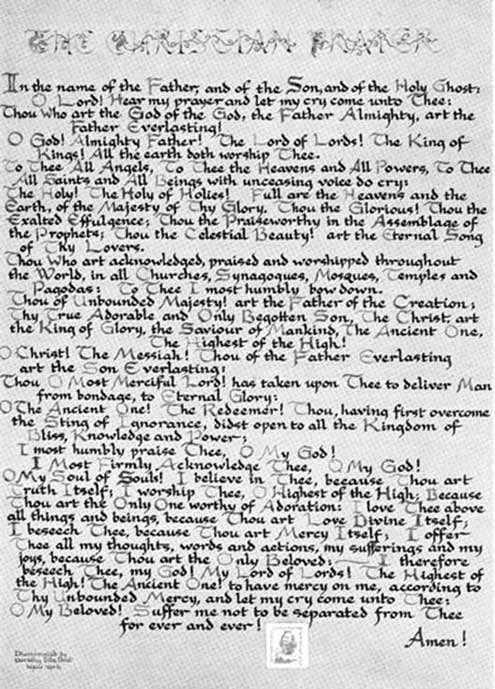 THE CHRISTIAN PRAYER
In the name of the Father, and of the Son, and of the Holy Ghost:
O Lord! Hear my prayer and let my cry come unto Thee:
Thou Who art the God of the God, the Father Almighty, art the
Father Everlasting!
O God! Almighty Father! The Lord of Lords! The King of
Kings! All the earth doth worship Thee.
To Thee All Angels, To Thee the Heavens and All Powers, To Thee
All Saints and All Beings with unceasing voice do cry:
The Holy! The Holy of Holies! Full are the Heavens and the
Earth, of the Majesty of Thy Glory. Thou the Glorious! Thou the
Exalted Effulgence; Thou the Praiseworthy in the Assemblage of
the Prophets; Thou the Celestial Beauty! art the Eternal Song
of Thy Lovers.
Thou Who art acknowledged, praised and worshipped throughout
the World, in all Churches, Synagogues, Mosques, Temples and
Pagodas: To Thee I most humbly bow down.
Thou of Unbounded Majesty! art the Father of the Creation;
Thy True Adorable and Only Begotten Son, The Christ, art
the King of Glory, the Saviour of Mankind, The Ancient One,
The Highest of the High!
O Christ! The Messiah! Thou of the Father Everlasting
art the Son Everlasting:
Thou O Most Merciful Lord! has taken upon Thee to deliver Man
from bondage, to Eternal Glory:
O The Ancient One! The Redeemer! Thou, having first overcome
the Sting of Ignorance, didst open to all the Kingdom of
Bliss, Knowledge and Power;
I most humbly praise Thee, O My God!
I Most Firmly Acknowledge Thee, O My God!
O My Soul of Souls! I believe in Thee, because Thou art
Truth Itself; I worship Thee, O Highest of the High, Because
Thou art the Only One worthy of Adoration: I love Thee above
all things and beings, because Thou art Love Divine Itself;
I beseech Thee, because Thou art Mercy Itself; I offer
Thee all my thoughts, words and actions, my sufferings and my
joys, because Thou art the Only Beloved: — I therefore
beseech Thee, my God! My Lord of Lords! The Highest of
the High! The Ancient One! to have mercy on me, according to
Thy Unbounded Mercy, and let my cry come unto Thee:
O My Beloved! Suffer me not to be separated from Thee
for ever and ever!
Amen!
New York